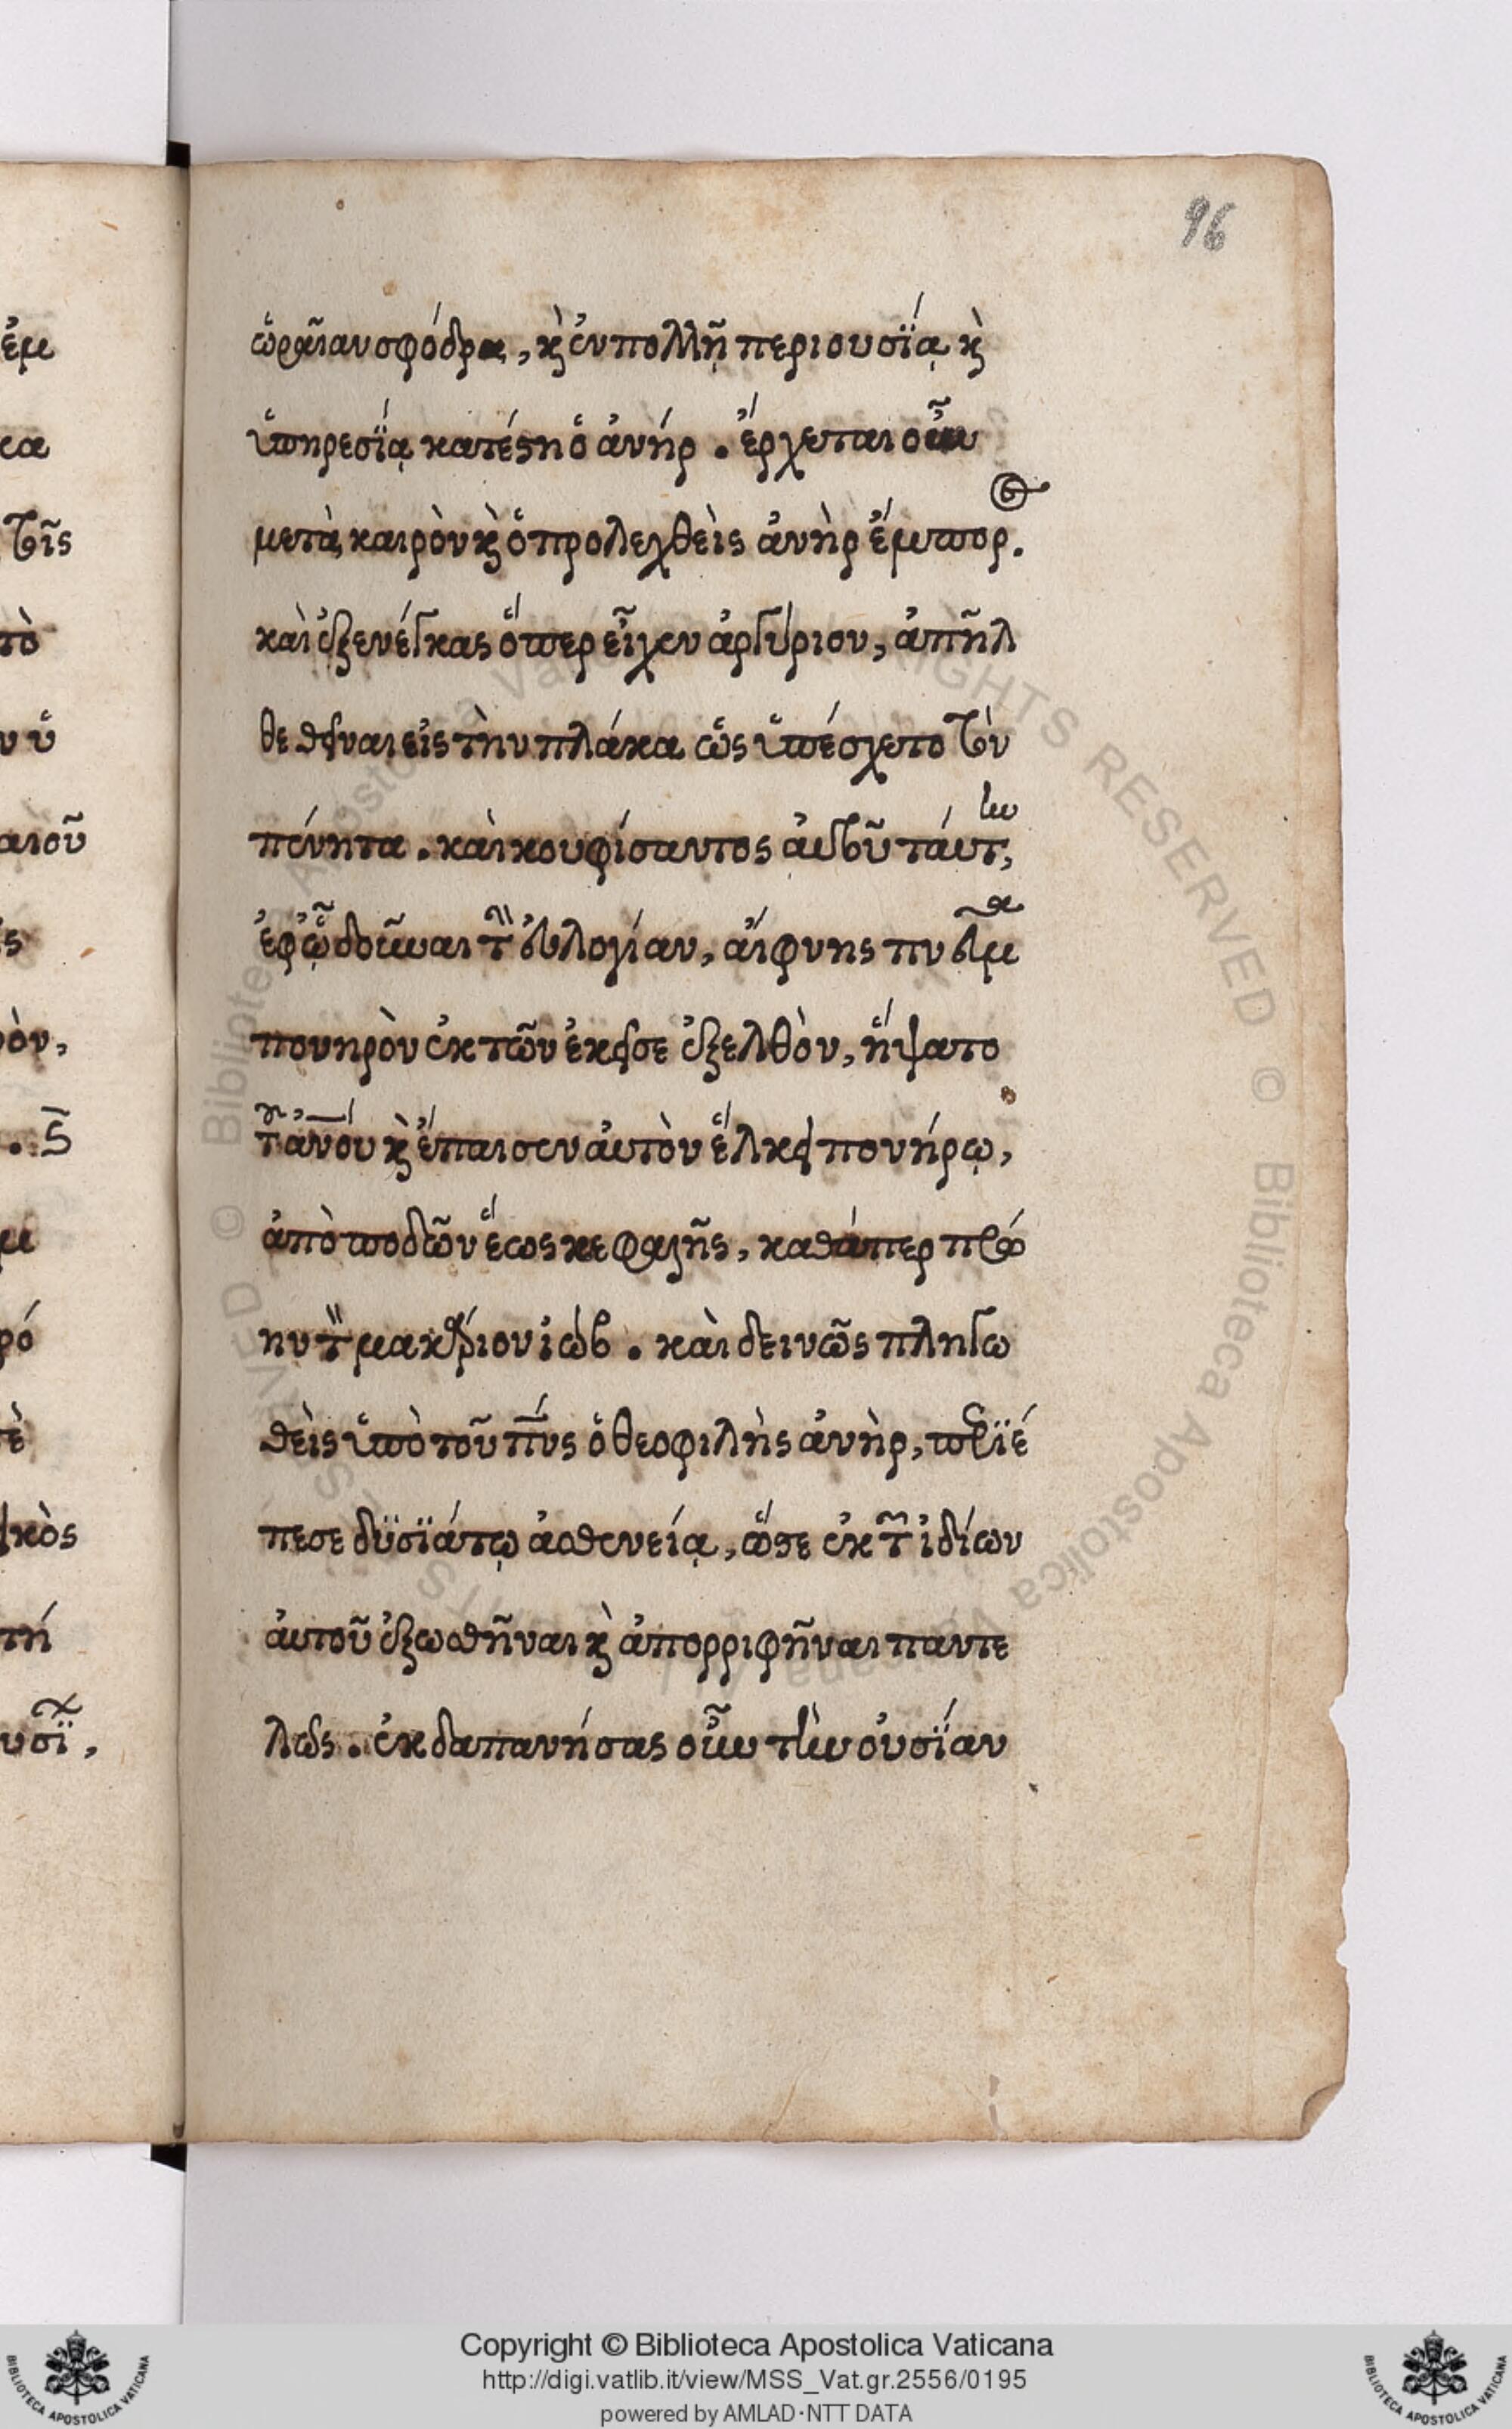 96
ὡραῖαν σφόδρα, κ̀ ἐν πολλῇ περιουσΐᾳ κ̀
ὑπηρεσΐᾳ κατέστη ὁ ἀνήρ. ἔρχεται οὖν
μετὰ καιρὸν κ̀ ὁ προλεχθεὶς ἀνὴρ ἔμπορ.
καὶ ἐξενέγκας ὅπερ εἶχεν ἀργύριον, ἀπῆλ
θε θεῖναι εἰς τὴν πλάκα ὡς ὑπέσχετο τὸν
πένητα. καὶ κουφίσαντος αὐτοῦ ταύτην,
ἐφ ᾧ δοῦναι τὴν εὐλογίαν, αἴφνης πνεῦμα
πονηρὸν ἐκ τῶν ἐκεῖσε ἐξελθὸν, ἥψατο
τοῦ ἀνου κ̀ ἔπαισεν αὐτὸν ἕλκει πονήρῳ,
ἀπὸ ποδῶν ἕως κεφαλῆς, καθάπερ πρώ
ην τὸν μακάριον ἰώβ. καὶ δεινῶς πληγω
θεὶς ὑπὸ τοῦ πνς ὁ θεοφιλὴς ἀνὴρ, περϊέ
πεσε δϋσϊάτῳ ἀσθενείᾳ, ὥστε ἐκ τῶν ἰδίων
αὐτοῦ ἐξωθῆναι κ̀ ἀπορριφῆναι παντε
λῶς. ἐκδαπανήσας οὖν τὴν οὐσΐαν
Copyright © Biblioteca Apostolica Vaticana
http://digi.vatlib.it/view/MSS_Vat.gr.2556/0195
powered by AMLAD·NTT DATA